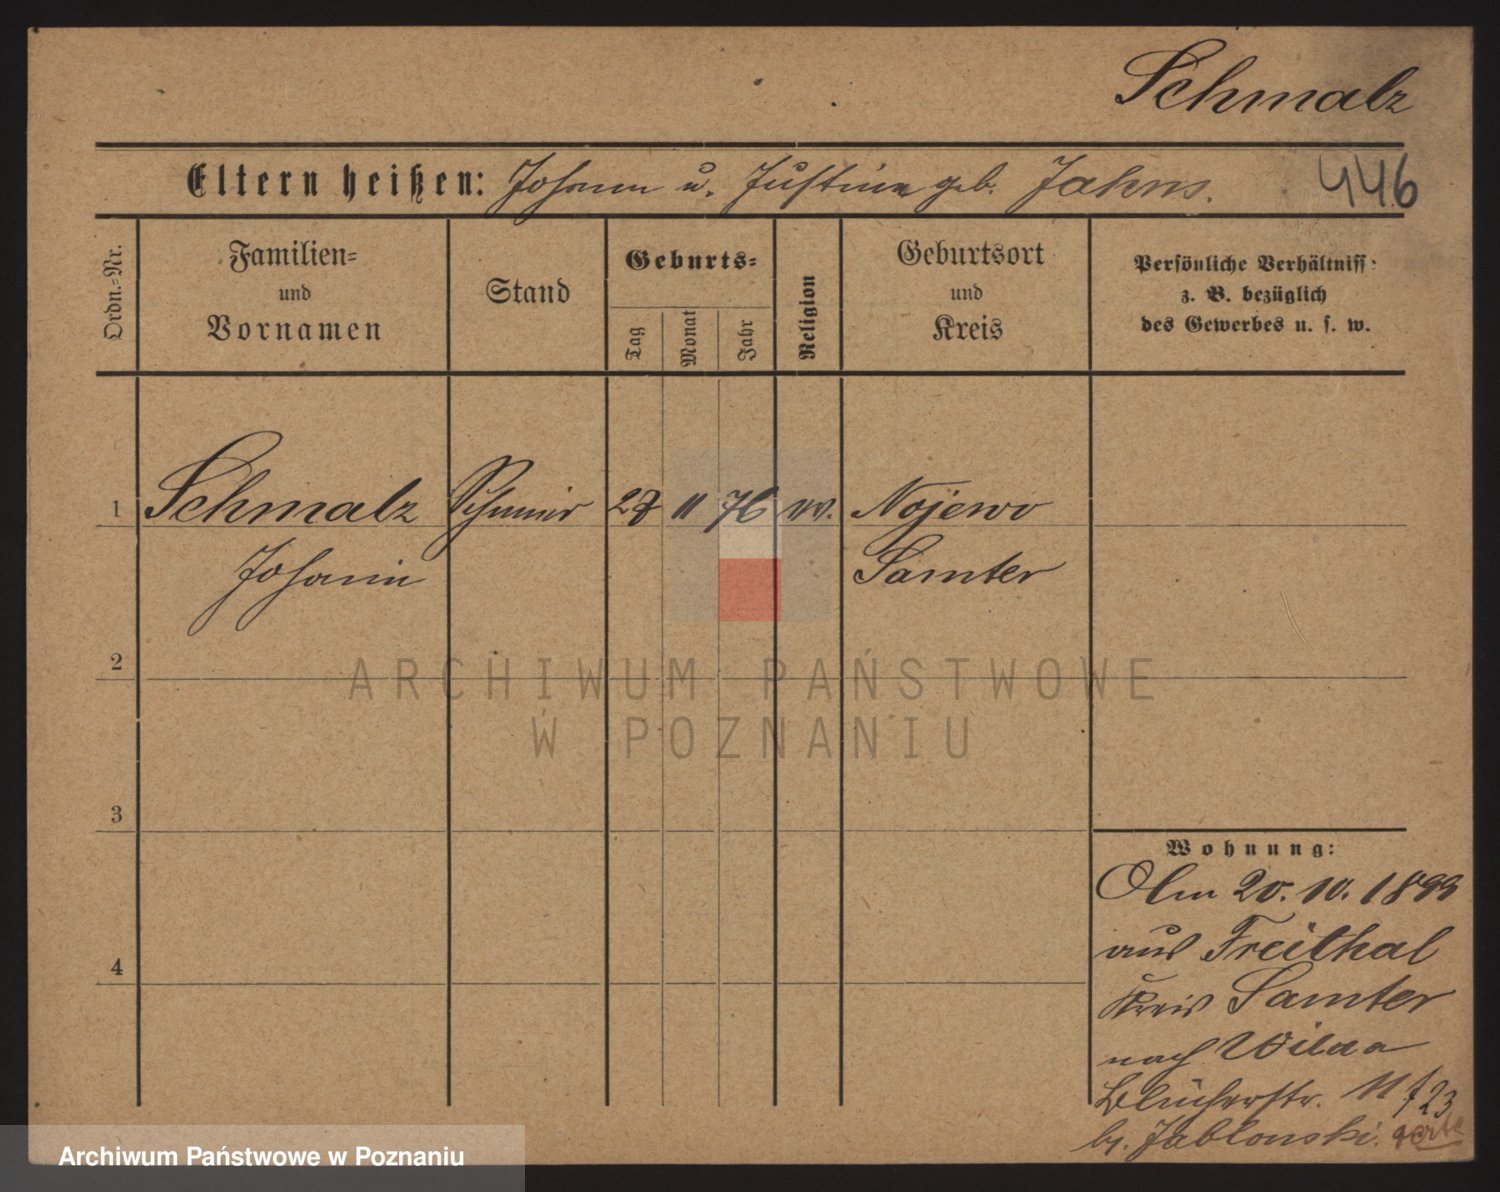 Schmalz
Eltern heißen: Johann u. Justine geb. Jahns. 446
Ordn.-Nr.
Familien-
und
Vornamen
Stand
Geburts-
Tag
Monat
Jahr
Religion
Geburtsort
und
Kreis
Persönliche Verhältniss
z. B. bezüglich
des Gewerbes u. s. w.
1 Schmalz 11 76 Nojewo
Johann Samter
2
3
4
ARCHIWUM PAŃSTWOWE
W POZNANIU
Wohnung:
Am 20. 10. 1899
aus Freithal
Kreis Samter
nach Wilda
Blücherstr. 11
b. Jablonski.
Archiwum Państwowe w Poznaniu